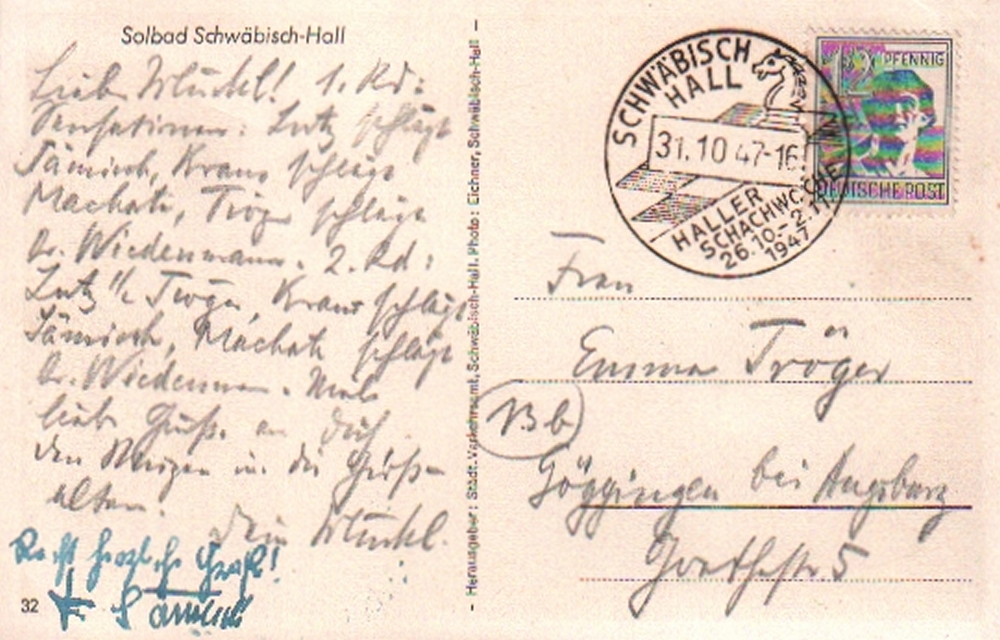 Solbad Schwäbisch-Hall
1. Rd:
Sensationen: Lutz schlägt
Jämisch, Kraus schlägt
Machate, Tröger schlägt
Dr. Wiedenmann. 2. Rd:
Lutz ½ Tröger, Kraus schlägt
Jämisch, Machate schlägt
Dr. Wiedenmann. Viele
liebe Grüße an Dich
den u. die Groß-
alten.
Dein
Recht herzliche Grüße!
32
- Herausgeber: Städt. Verkehrsamt, Schwäbisch-Hall. Photo: Eichner, Schwäbisch-Hall -
SCHWÄBISCH
HALL
31.10 47-16
HALLER
SCHACHWOCHE
26.10.-2.11.
1947
12 PFENNIG
DEUTSCHE POST
Frau
Emma Tröger
Bb
Göggingen bei Augsburg
Goethestr. 5